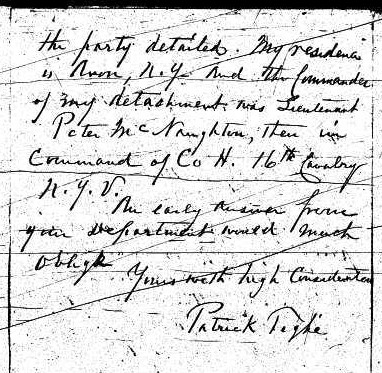 the party detailed. My residence
is Avon, N.Y. and the Commander
of my detachment was Lieutenant
Peter McNaughton, then in
Command of Co H. 16th Cavalry
N.Y.V.
An early answer from
your Department would much
oblige
Yours with high Consideration
Patrick Tighe